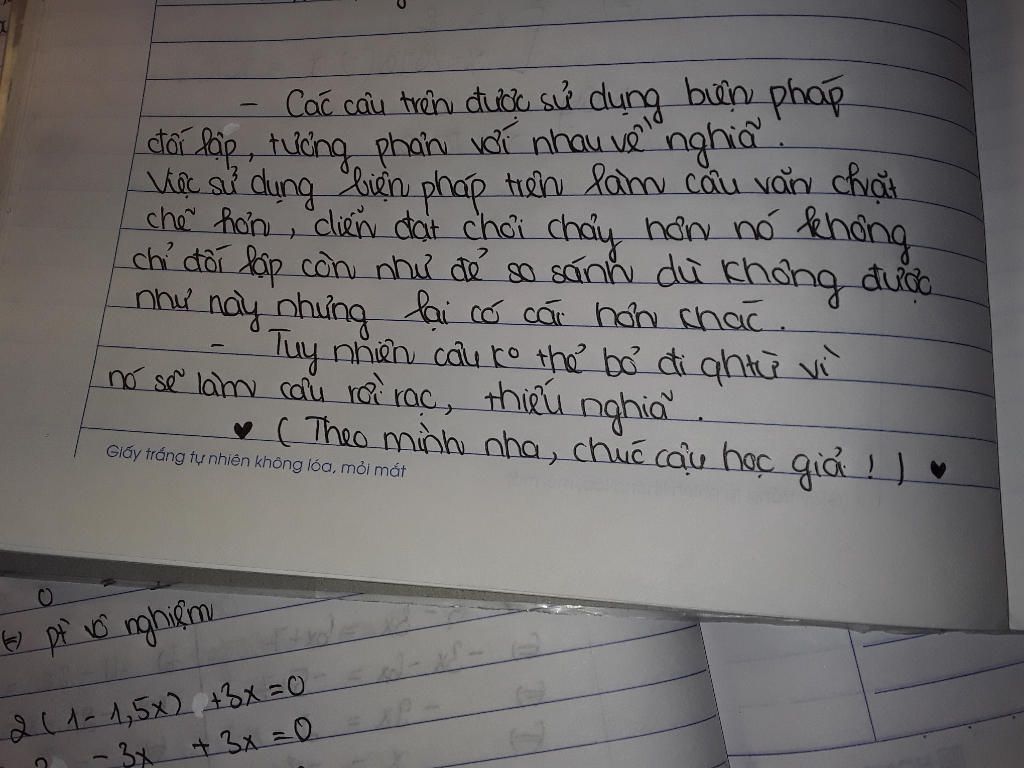 - Các câu trên được sử dụng biện pháp
đối lập, tương phản với nhau về nghĩa.
Việc sử dụng biện pháp trên làm câu văn chặt
chẽ hơn, diễn đạt chôi chảy hơn nó không
chỉ đối lập còn như để so sánh dù không được
như này nhưng lại có cái hơn khác.
- Tuy nhiên câu ko thể bỏ đi qhtừ vì
nó sẽ làm câu rời rạc, thiếu nghĩa.
♥ (Theo mình nha, chúc cậu học giỏi!) ♥
Giấy trắng tự nhiên không lóa, mỏi mắt
0 =
(=) pt vô nghiệm
2(1-1,5x) +3x=0
2 -3x +3x=0